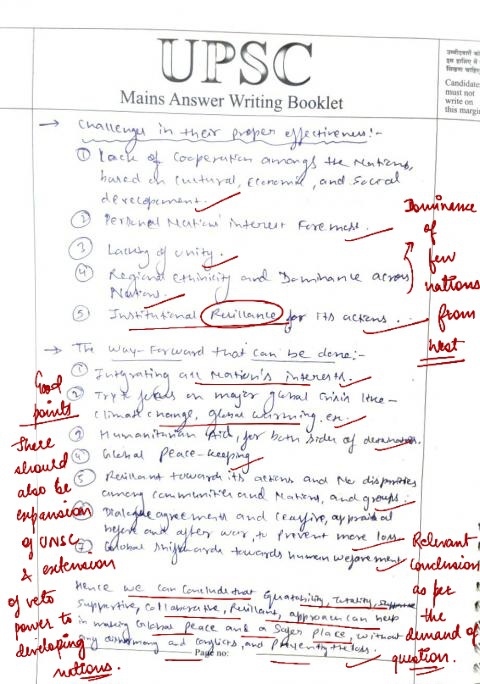 UPSC
Mains Answer Writing Booklet
उम्मीदवारों को
इस हाशिए में
लिखना चाहिए
Candidates
must not
write on
this margin
→ Challenges in their proper effectiveness:-
① Lack of Cooperation amongs the Nations,
based on Cultural, Economic, and Social
development.
② Personal Nation' interest Foremost.
③ Lacking of unity.
④ Regional Ethinicity and Dominance across
Nations.
⑤ Institutional Resillance for its actions.
Dominance
of
few
nations
from
West
→ The Way-Forward that can be done:-
① Intgrating all Nation's interests.
② Try + focus on major global Crisis like -
Climate change, global warming, etc.
③ Humanitarian Aid, for both sides of
④ Global Peace-keeping
⑤ Resillant towards its actions and No disparities
among communities and Nations, and groups.
⑥ Dialogue agreements and ceasfire,
before and after war, to prevent more loss.
⑦ Global shift towards human
Good
points
There
should
also be
expansion
of UNSC
& extension
of veto
power to
developing
nations.
Hence we can conclude that Equatability, Totality,
Supportive, Collaborative, Resillant, approach can help
in making Global peace and a Safer place, without
any disharmony and conflicts, and the loss.
Relevant
conclusion
as per
the
demand of
question.
Page no: